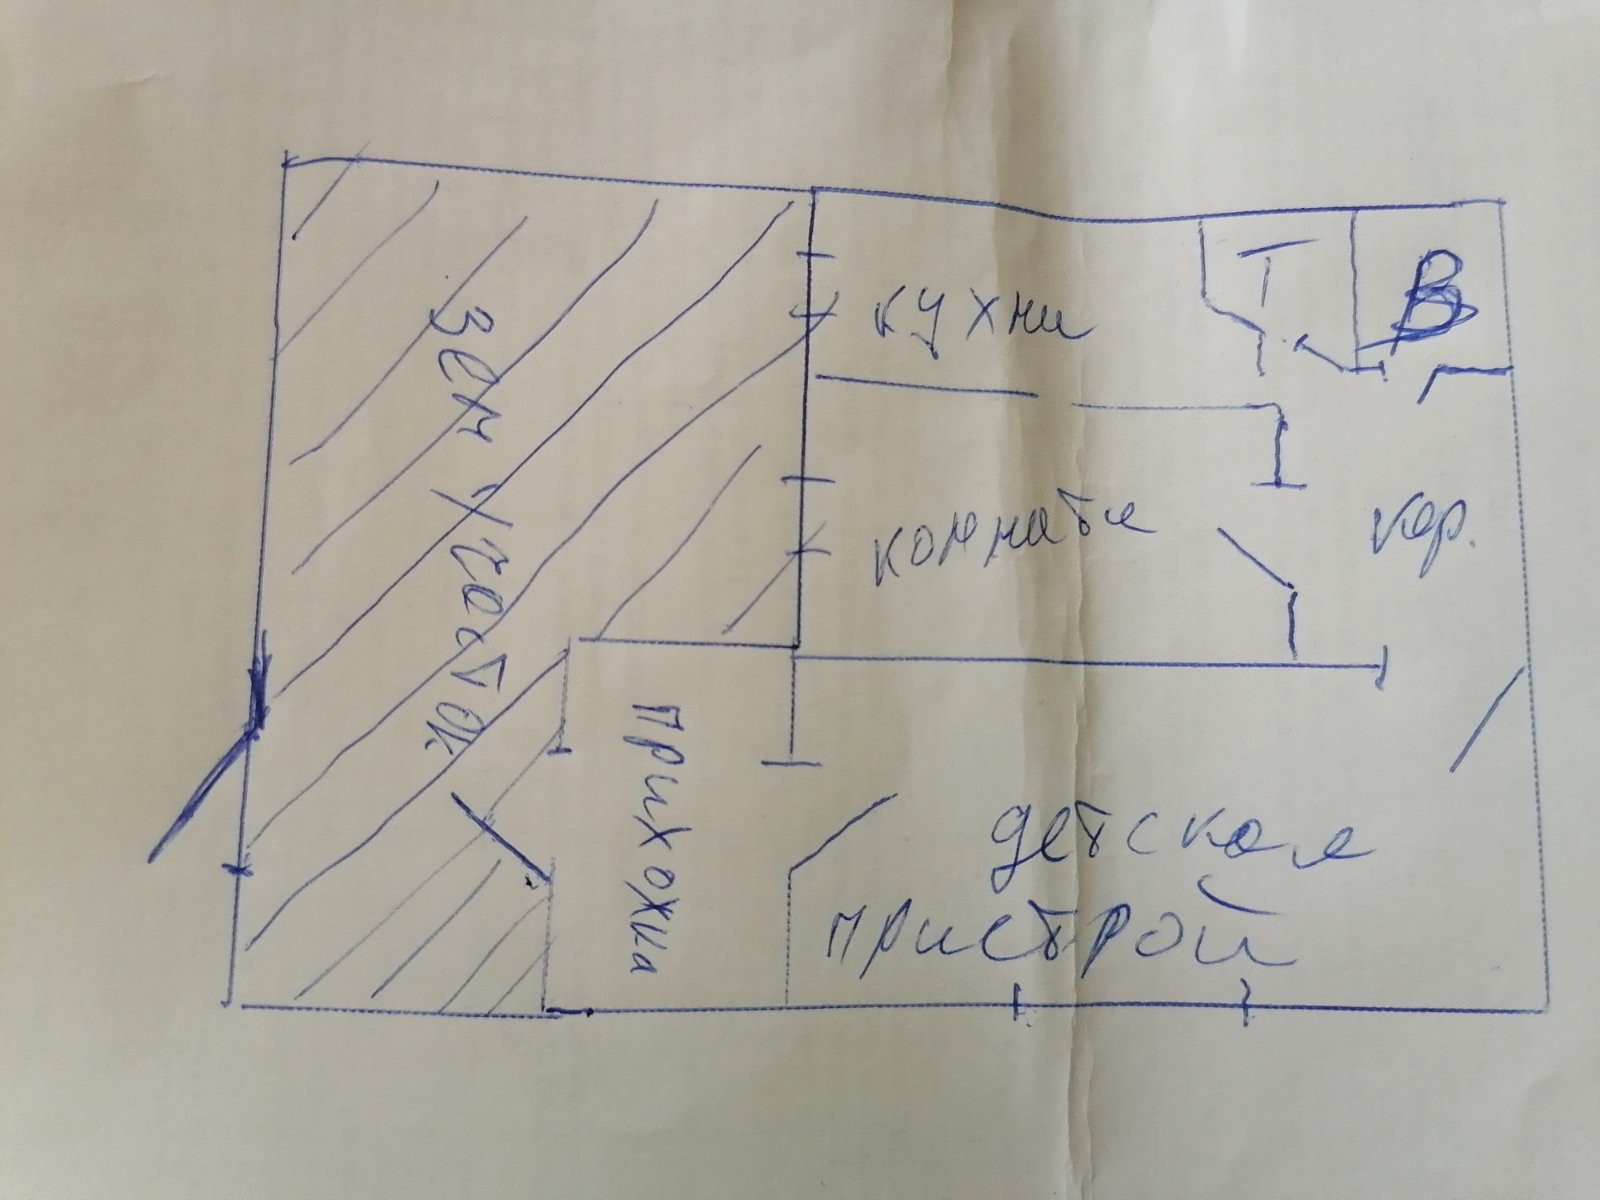 зем участок
кухни
Т
В
комната
кор.
прихожиа
детская
пристрой